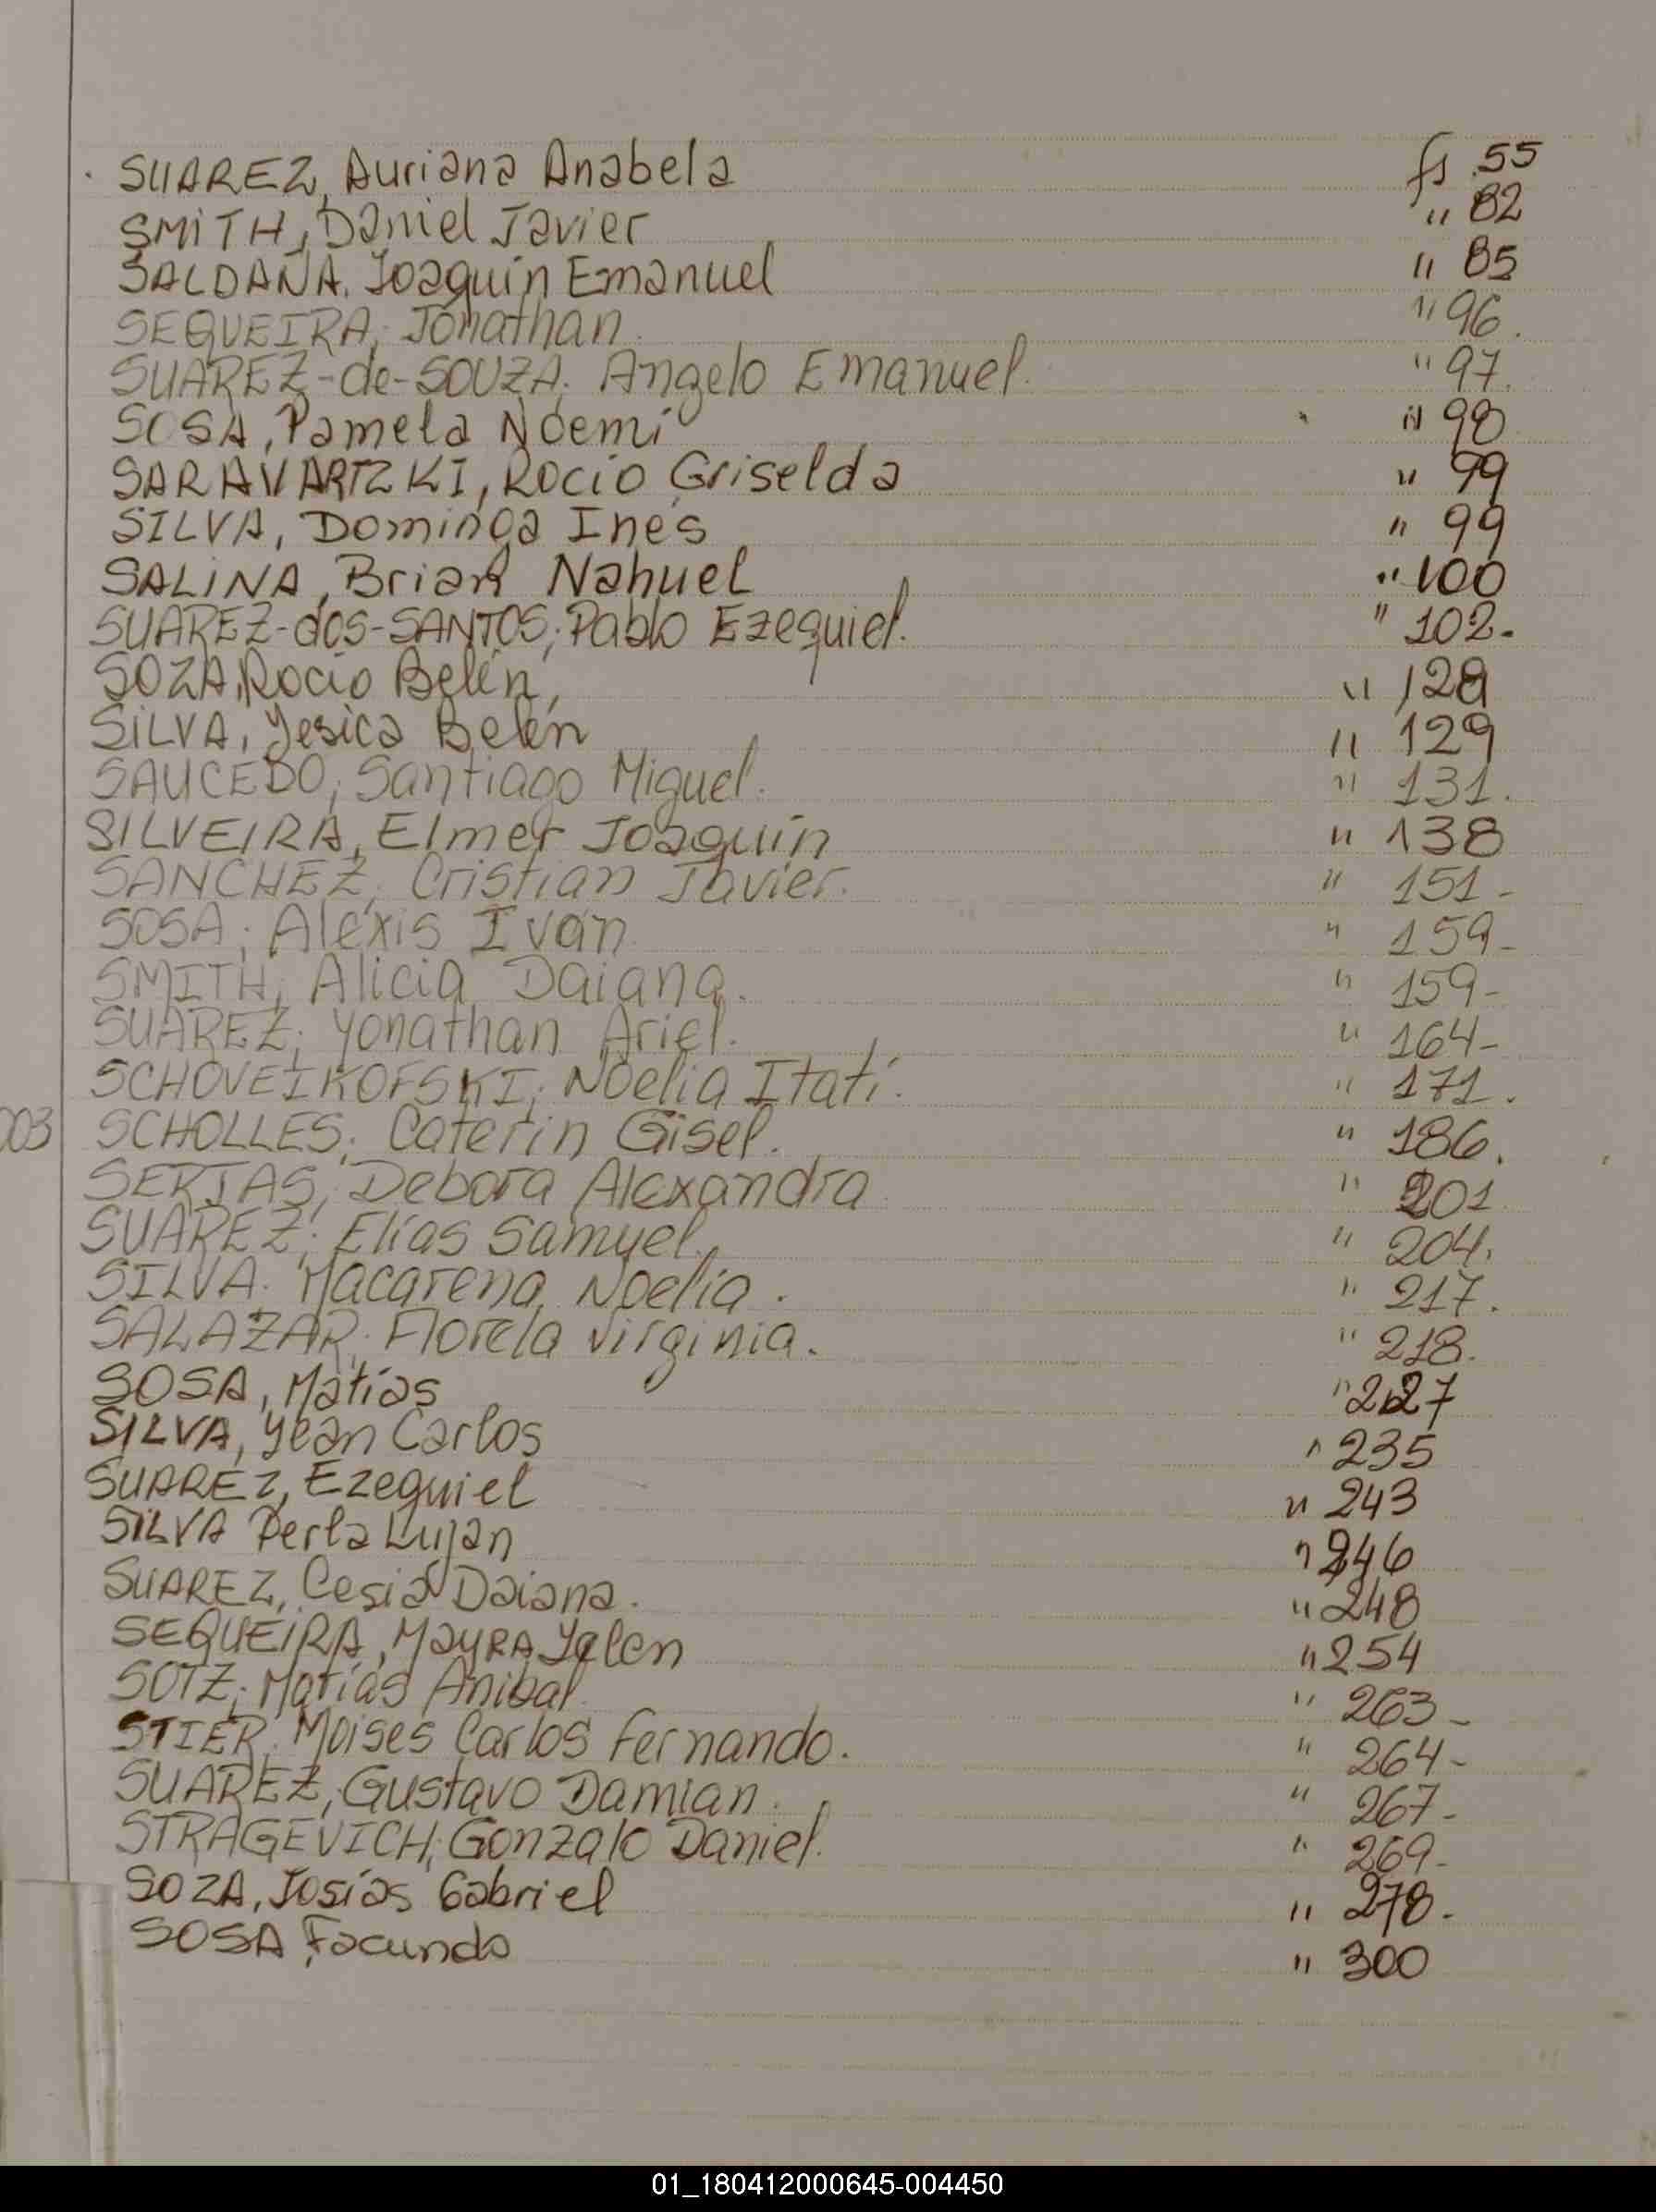 SUAREZ, Auriana Anabela fs 55
SMITH, Daniel Javier " 82
SALDAÑA, Joaquín Emanuel " 85
SEQUEIRA; Jonathan. " 96.
SUAREZ-de-SOUZA; Angelo Emanuel. " 97.
SOSA, Pamela Noemí " 98
SARAVARTZKI, Rocio Griselda " 99
SILVA, Dominga Inés " 99
SALINA, Brian Nahuel " 100
SUAREZ-dos-SANTOS; Pablo Ezequiel. " 102.
SOZA, Rocio Belén, " 128
SILVA, Yesica Belén " 129
SAUCEDO; Santiago Miguel. " 131.
SILVEIRA, Elmer Joaquín " 138
SANCHEZ; Cristian Javier. " 151-
SOSA; Alexis Iván " 159-
SMITH; Alicia Daiana. " 159-
SUAREZ; Yonathan Ariel. " 164-
SCHOVEIKOFSKI; Noelia Itatí. " 171.
003 SCHOLLES; Caterin Gisel. " 186.
SERTAS; Debora Alexandra " 201
SUAREZ; Elías Samuel. " 204.
SILVA. Macarena Noelia. " 217.
SALAZAR; Florela Virginia. " 218.
SOSA, Matías " 227
SILVA, Yean Carlos " 235
SUAREZ, Ezequiel " 243
SILVA Perla Lujan " 246
SUAREZ, Cesia Daiana. " 248
SEQUEIRA, Mayra Yalen " 254
SOTZ; Matías Anibal " 263-
STIER; Moises Carlos Fernando. " 264-
SUAREZ; Gustavo Damian. " 267-
STRAGEVICH; Gonzalo Daniel. " 269-
SOZA, Josías Gabriel " 278.
SOSA, Facundo " 300
01_180412000645-004450